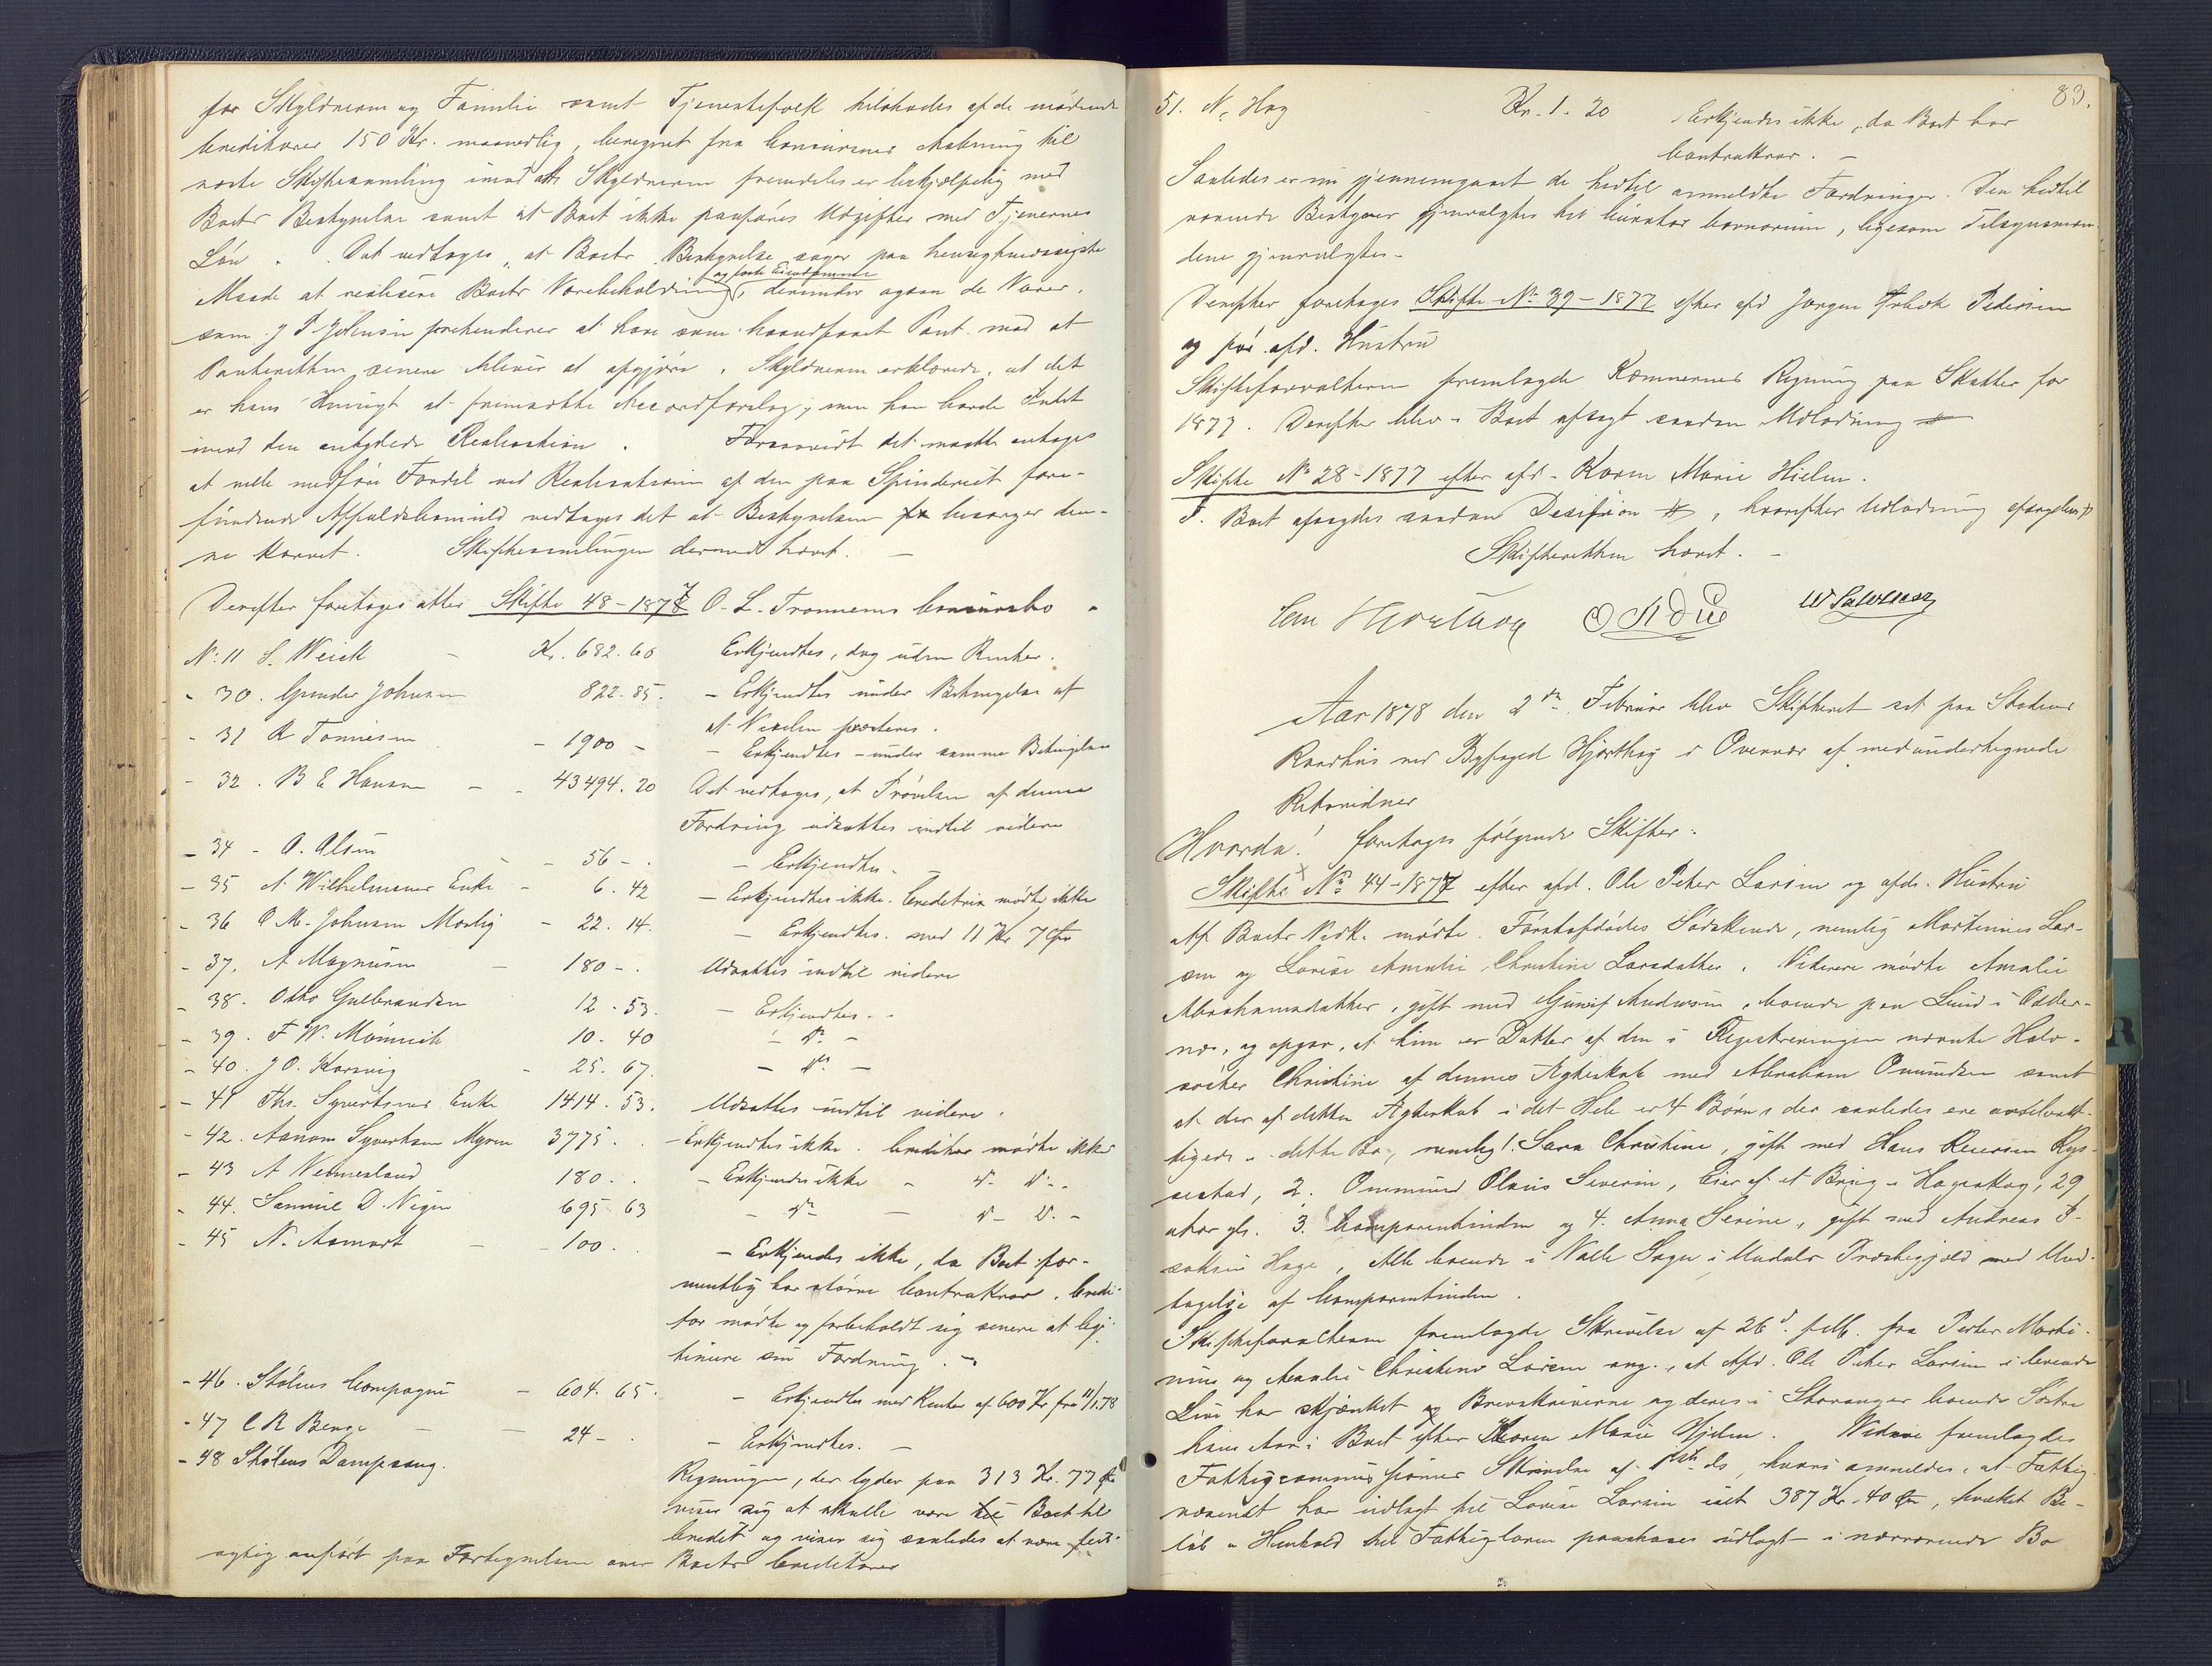 for Skyldneren og Familie samt Tjenestefolk tilstodes af de mødende
Creditorer 150 Kr. maanedlig, beregnet fra Concursens Aabning til
næste Skiftesamling imod at Skyldneren fremdeles er behjælpelig med
Boets Bestyrelse samt at Boet ikke paaføres Udgifter med Tjenernes
Løn. Det vedtoges, at Boets Bestyrelse søger paa hensigtsmæssigste
og faste Eiendomme
Maade at realisere Boets Varebeholdning, derunder ogsaa de Varer,
som J P Johnsen prætenderer at have som haandfaaet Pant mod at
Panteretten senere bliver at afgjøre. Skyldneren erklærede, at det
er hans Hensigt at fremsætte Accordforslag, men han havde Intet
imod den antydede Realisation. Forsaavidt det maatte antages
at ville medføre Fordel ved Realisationen af den paa Spinderiet fore-
findende Affaldsbomuld vedtoges det at Bestyrelsen besørger den-
ne karvet. Skiftesamlingen dermed hævet. -
Derefter foretoges atter Skifte 48-1877 O. L. Tronnems Concursbo.
No 11 S. Weick - Kr. 682.60 Erkjendtes, dog uden Renter.
- 30. Gunder Johnsen 822.85. - Erkjendtes under Betingelse af
at Vexelen præsteres.
- 31 R Tønnesen - 1900 - - Erkjendtes - under samme Betingelse
- 32. B E Hansen - - 43494.20 Det vedtoges, at Prøvelsen af denne
Fordring udsættes indtil videre
- 34 - O. Olsen - 56 - . - Erkjendtes. -
- 35 N. Wilhelmsens Enke - 6.42 - Erkjendtes ikke. Creditrix mødte ikke
- 36 O M. Johnsen Mosbig - 22.14. - Erkjendtes. med 11 Kr 7 Øre
- 37. A Magnusen - 180 - . Udsættes indtil videre
- 38. Otto Gulbrandsen 12.53. - Erkjendtes. -
- 39. F W. Mønnich 10.40 - do -
- 40. J O. Korsvig - 25.67. - do -
- 41 Ths. Syvertsens Enke 1414.53. Udsættes indtil videre.
- 42. Aanon Syvertsen Myren 3775. . - Erkjendtes ikke. Creditor mødte ikke
- 43 A Vennesland 180. . - Erkjendes ikke - do do. -
- 44. Samuel D. Vigen 695 63 - do - do do. -
- 45 N. Aamodt - - 100. . - Erkjendes ikke, da Boet for-
mentlig har større Contrakrav. Credi-
tor mødte og forbeholdt sig senere at legi-
timere sin Fordring. -
- 46. Stølens Compagni - 604.65. - Erkjendtes med Renter af 600 Kr fra 11/1.78
- 47 C R Berge - - 24 - . - Erkjendtes. -
- 48 Stølens Dampsaug. Regningen, der lyder paa 313 Kr. 77 Øre
viser sig at skulle være Boet til
Credet og viser sig saaledes at være feil-
agtig anført paa Fortegnelsen over Boets Creditorer
83.
51. N. Hag - Kr. 1.20 Erkjendes ikke, da Boet har
Contrakrav. -
Saaledes er nu gjennemgaaet de hidtil anmeldte Fordringer. Den hidtil
værende Bestyrer gjenvalgtes til Curator bonorum, ligesom Tilsynsmæn-
dene gjenvalgtes. -
Derefter foretoges Skifte No 39-1877 efter afd Jørgen Peter Pedersen
og før afd. Hustru
Skifteforvalteren fremlagde Kæmnerens Regning paa Skatter for
1877. Derefter blev i Boet afsagt saadan Udlodning #
Skifte No 28-1877 efter afd. Karen Marie Hielm.
I Boet afsagdes saadan Decision #, hvorefter Udlodning afsagdes #
Skifteretten hævet. -
Carl Hjorthøy O N Due W Salvesen
Aar 1878 den 2den Februar blev Skifteret sat paa Stadens
Raadhus ved Byfoged Hjorthøy i Overvær af medundertegnede
Retsvidner
Hvorda! foretoges følgende Skifter:
Skifte No 44-1877 efter afd. Ole Peter Larsen og afd. Hustru
Af Boets Vedk. mødte Førstafdødes Sødskende, nemlig Martinius Lar-
sen og Lovise Amalie Christine Larsdatter. Videre mødte Amalie
Abrahamsdatter, gift med Gunuf Andersen, boende paa Lund i Odder-
nes, og opgav, at hun er Datter af den i Registreringen nævnte Halv-
søster Christine af dennes Ægteskab med Abraham Onundsen samt
at der af dette Ægteskab i det Hele er 4 Børn, der saaledes ere arveberet-
tigede i dette Bo, nemlig 1. Sara Christine, gift med Hans Reiersen Rys-
sestad, 2. Onnmund Olaus Severin, Eier af et Brug i Hageskog, 29
aar gl. 3. Comparentinden og 4. Anna Serine, gift med Andreas I-
saksen Hage, Alle boende i Valle Sogn i Undals Præstegjeld med Und-
tagelse af Comparentinden.
Skifteforvalteren fremlagde Skrivelse af 26d. f. M. fra Peder Marti-
nius og Amalie Christine Larsen ang. at Afd. Ole Peter Larsen i levende
Live har skjænket Brevskriverne og deres i Stavanger boende Søstre
hans Arv i Boet efter Karen Marie Hjelm. Videre fremlagdes
Fattigcommissionens Skrivelse af 1ste ds, hvori anmeldes, at Fattig-
væsenet har udlagt til Lovise Larsen ialt 387 Kr. 40 Øre, hvilket Be-
løb i Henhold til Fattigloven paastaaes udlagt i nærværende Bo